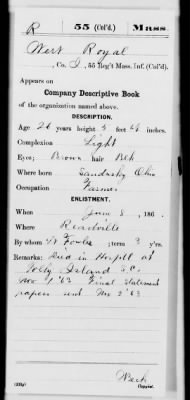 R 55 (Col'd.) Mass.
West Royal
, Co. I, 55 Reg't Mass. Inf. (Col'd),
Appears on
Company Descriptive Book
of the organization named above.
DESCRIPTION.
Age 26 years; height 5 feet 6 inches.
Complexion Light
Eyes; Brown hair Blk
Where born Sandusky Ohio
Occupation Farmer
ENLISTMENT.
When June 8, 186 .
Where Readville
By whom Fowler; term 3 y'rs.
Remarks: Died in Hosptl at
Folly Island S.C.
Nov 1 '63 Final Statement
papers sent Nov 2 '63
Copyist.